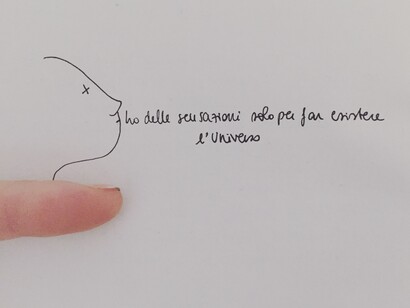 ho delle sensazioni solo per far esistere
l'Universo